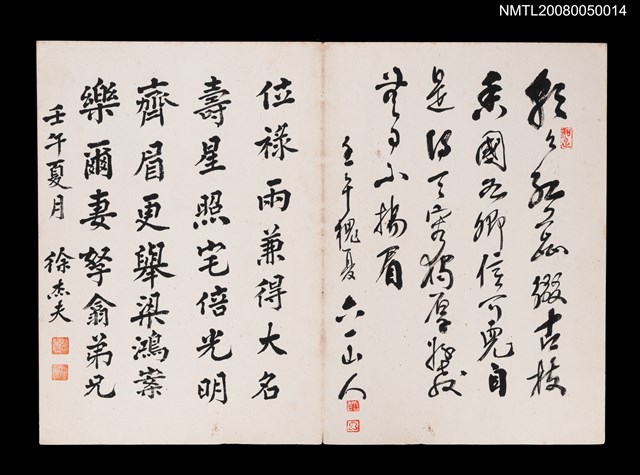 NMTL20080050014
紅蕊綴古枝
香國卿信可兒自
是得天獨厚
無日不揚眉
壬午槐夏 六一山人
位祿兩兼得大名
壽星照宅倍光明
齊眉更舉梁鴻案
樂爾妻孥翁弟兄
壬午夏月 徐杰夫